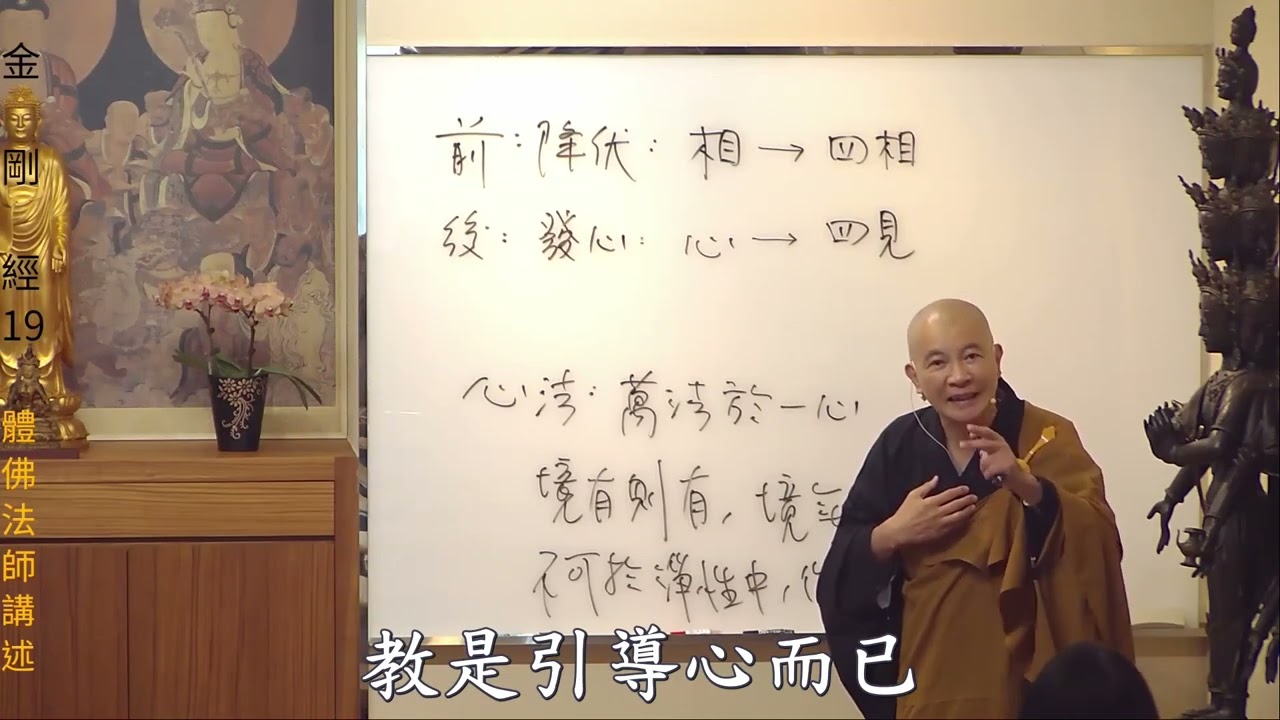 金剛經19
體佛法師講述
前：降伏：相→四相
後：發心：心→四見
心法：萬法於一心
境有則有，境無
不可於淨性中，作
教是引導心而已